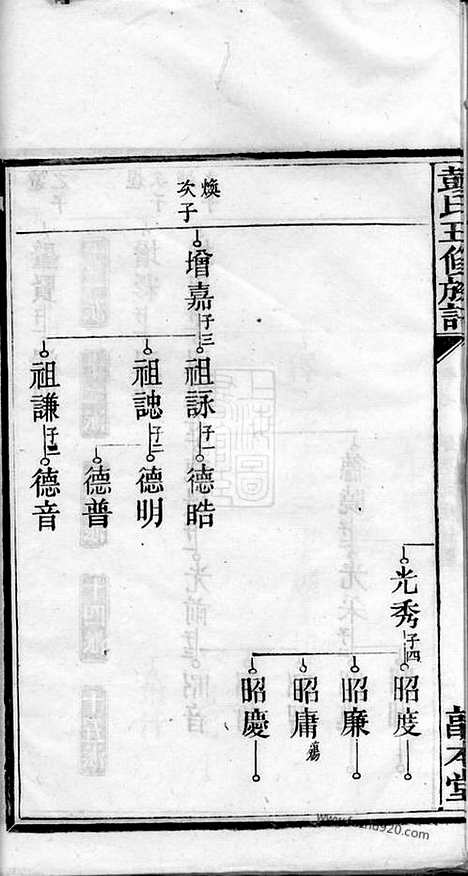 彭氏五修族譜
敦本堂
光秀 子四
昭度
昭廉
昭庸 殤
昭慶
煥次子
增嘉 子三
祖詠 子一
德晧
祖誌 子二
德明
德普
祖謙 子二
德音
www.fozhu920.com